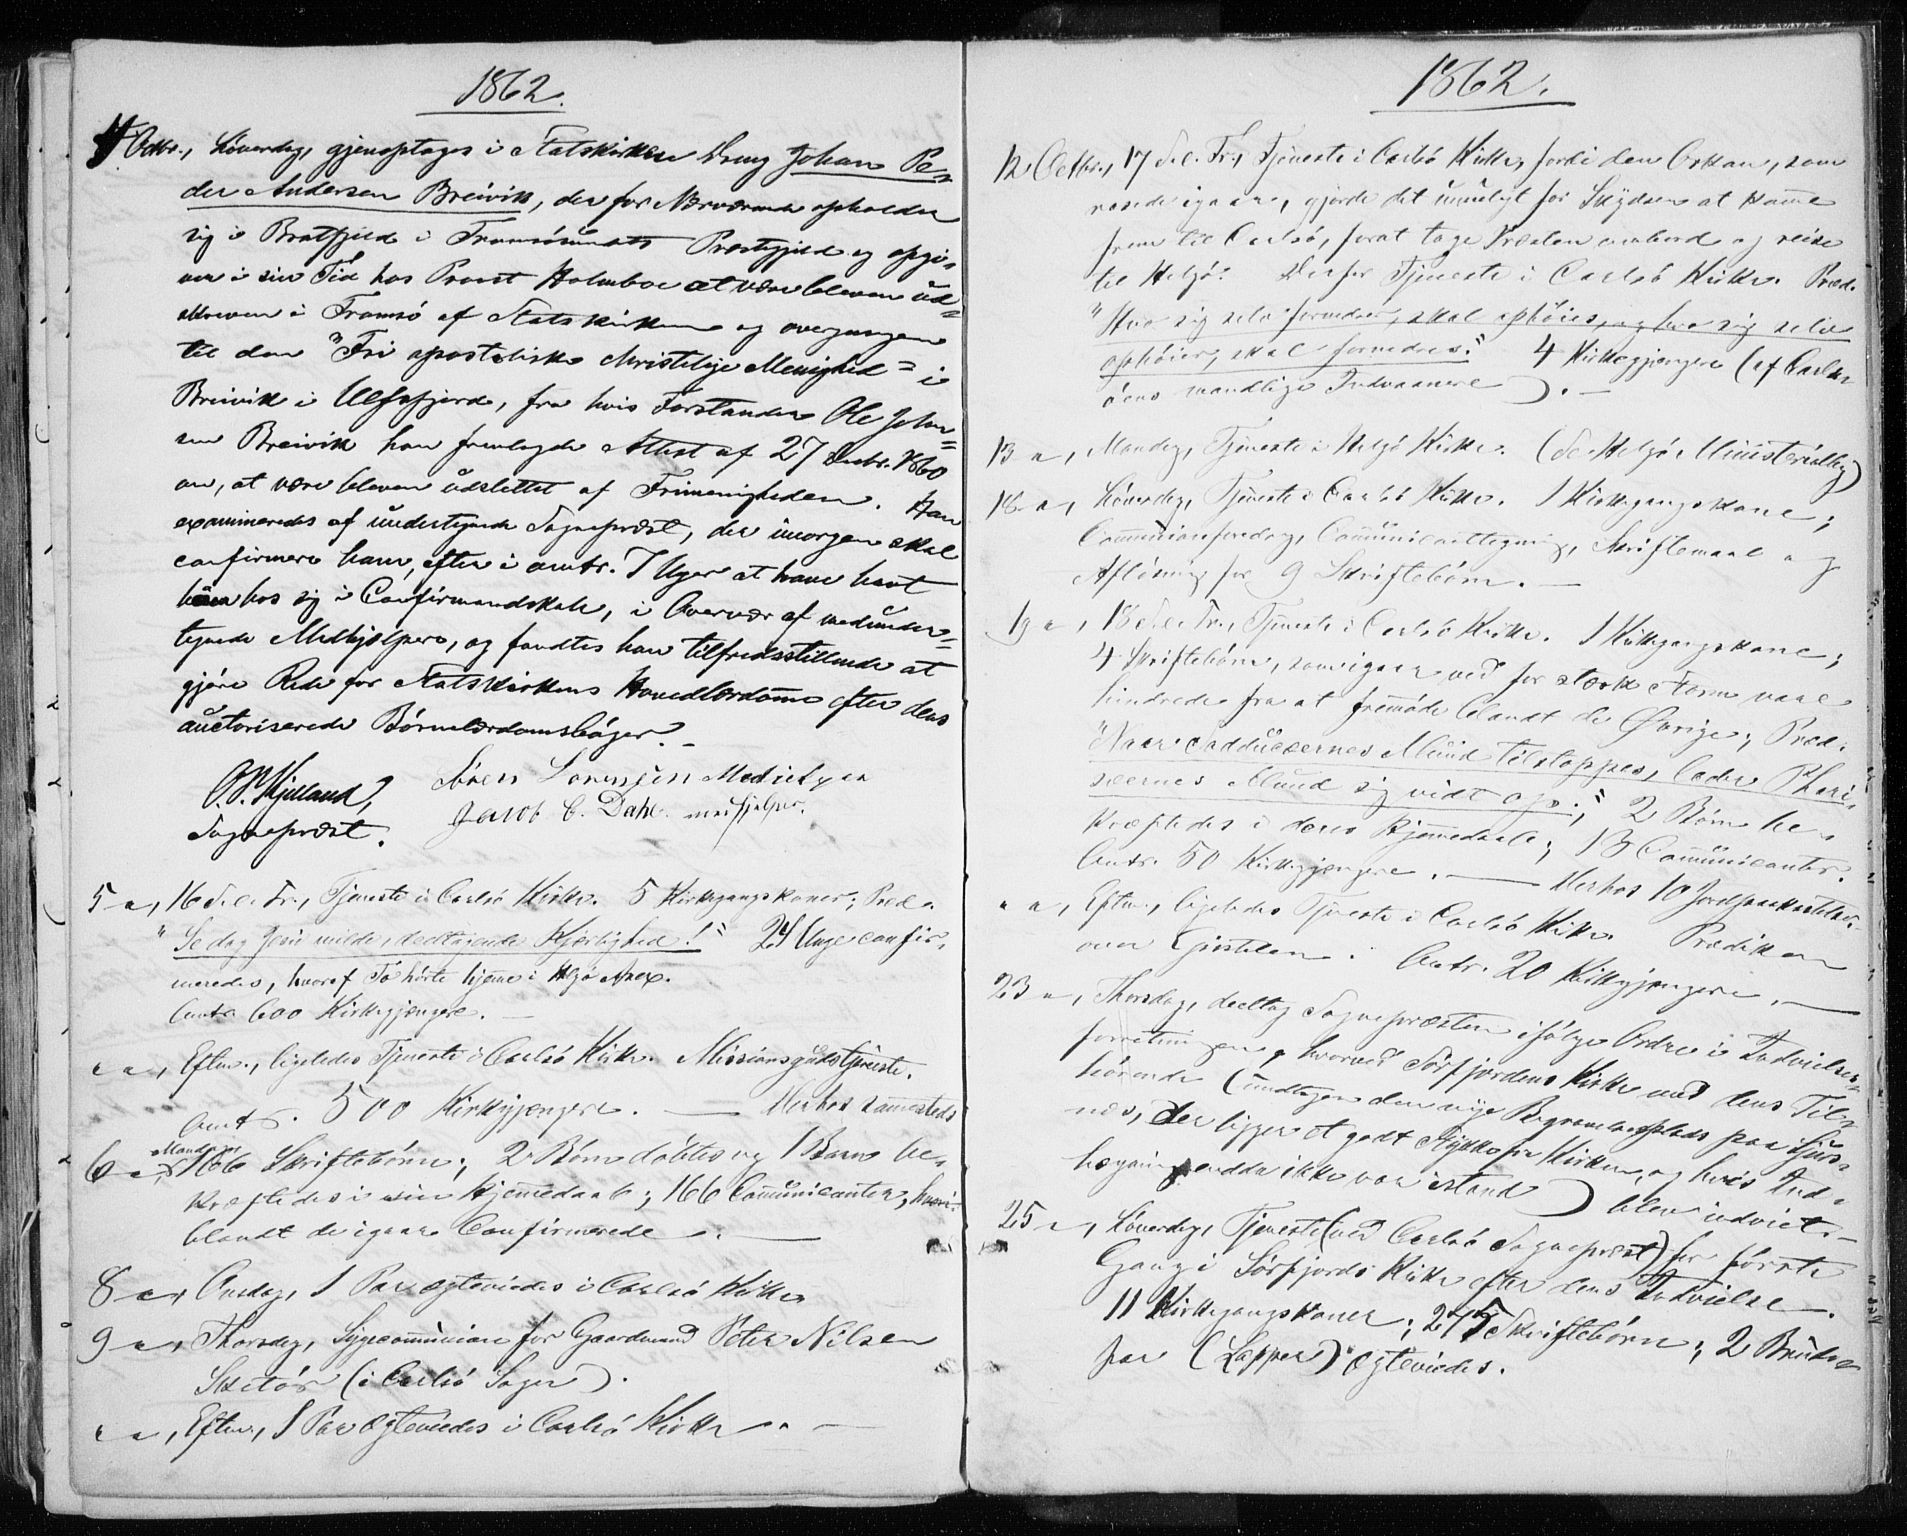 1862.
4 Octbr., Löverdag, gjenoptages i Statskirken Dreng Johan Pe-
der Andersen Breivik, der for Nærværende opholder
sig i Bratfjeld i Tromsösunds Præstegjeld og opgi-
ver i sin Tid hos Provst Holmboe at være bleven ud-
skreven i Tromsö af Statskirken og overgangen
til den "Fri apostoliske christelige Menighed" i
Breivik i Ulfsfjord, fra hvis Forstander Ole John-
sen Breivik han fremlagde Attest af 27 1860
om, at være bleven udslettet af Frimenigheden. Han
examineredes af undertegnede Sognepræst, der imorgen skal
confirmere ham, efter i omtr. 7 Uger at have havt
ham hos sig i Confirmandskole, i Overvær af medunder-
tegnede Medhjelpere, og fandtes han tilfredsstillende at
gjöre Rede for Statskirkens Hovedlærdomme efter dens
auctoriserede Börnelærdomsböger. -
O. Kjelland,
Sognepræst.
Sören Sörensen Medhielper
Jacob C. Dahl medhjelper.
5 -, 16 S. e. Tr., Tjeneste i Carlsö Kirke. 5 Kirkegangskoner; Præd.
"Se dog Jesu milde, deeltagende Kjerlighed!" 24 Unge confir-
meredes, hvoraf To hörte hjemme i Helgö Anex.
Omtr. 600 Kirkegjængere. -
" -, Efterm., ligeledes Tjeneste i Carlsö Kirke. Missionsgudstjeneste.
Omtr. 500 Kirkegjængere. - sammesteds
6 -, Mandag, 166 Skriftebörn; 2 Börn döbtes og 1 Barn be-
kræftedes i sin Hjemmedaab; 166 Communicanter, hvori-
blandt de igaar Confirmerede. -
8 -, Onsdag, 1 Par ægteviedes i Carlsö Kirke
9 -, Thorsdag, Sygecommunion for Gaardmand Peter Nilsen
Sketör (i Carlsö Sogn).
" -, Efterm., 1 Par ægteviedes i Carlsö Kirke. -
1862.
12 Octbr., 17 S. e. Tr., Tjeneste i Carlsö Kirke, fordi den Orkan, som
rasede igaar, gjorde det umuligt for Skydsen at komme
frem til Carlsö, forat tage Præsten ombord og reise
til Helgö. Derfor Tjeneste i Carlsö Kirke. Præd.
"Hvo sig selv fornedrer, skal ophöies, og hvo sig selv
ophöier, skal fornedres." 4 Kirkegjængere (af Carls-
öens mandlige Indvaanere). -
13 -, Mandag, Tjeneste i Helgö Kirke. (Se Helgö Ministerialbog)
18 -, Löverdag, Tjeneste i Carlsö Kirke. 1 Kirkegangskone;
Communionforedrag, Communicanttegning, Skriftemaal og
Aflösning for 9 Skriftebörn. -
19 -, 18 S. e. Tr., Tjeneste i Carlsö Kirke. 1 Kirkegangskone;
4 Skriftebörn, som igaar ved for stærk Storm vare
hindrede fra at fremmöde blandt de Övrige; Præd.
"Naar Sadducæernes Mund tilstoppes, lader Phari-
sæernes Mund sig vidt op."; 2 Börn be-
kræftedes i deres Hjemmedaab; 13 Communicanter.
Omtr. 50 Kirkegjængere. - 10 Jordpaakastelser.
" -, Efterm., ligeledes Tjeneste i Carlsö Kirke. Prædiken
over Epistelen. Omtr. 20 Kirkegjængere. -
23 -, Thorsdag, deeltog Sognepræsten ifölge Ordre i Indvielses-
forretningen, hvorved Sörfjordens Kirke med dens Til-
hörende (undtagen den nye Begravelsesplads paa Sjurs-
næs, der ligger et godt Stykke fra Kirken, og hvis Ind-
hegning endda ikke var istand) blev indviet. -
25 -, Löverdag, Tjeneste (ved Carlsö Sognepræst) for förste
Gang i Sörfjords Kirke efter dens Indvielse.
11 Kirkegangskoner; 275 Skriftebörn; 2 Brude-
par (Lapper) ægteviedes.